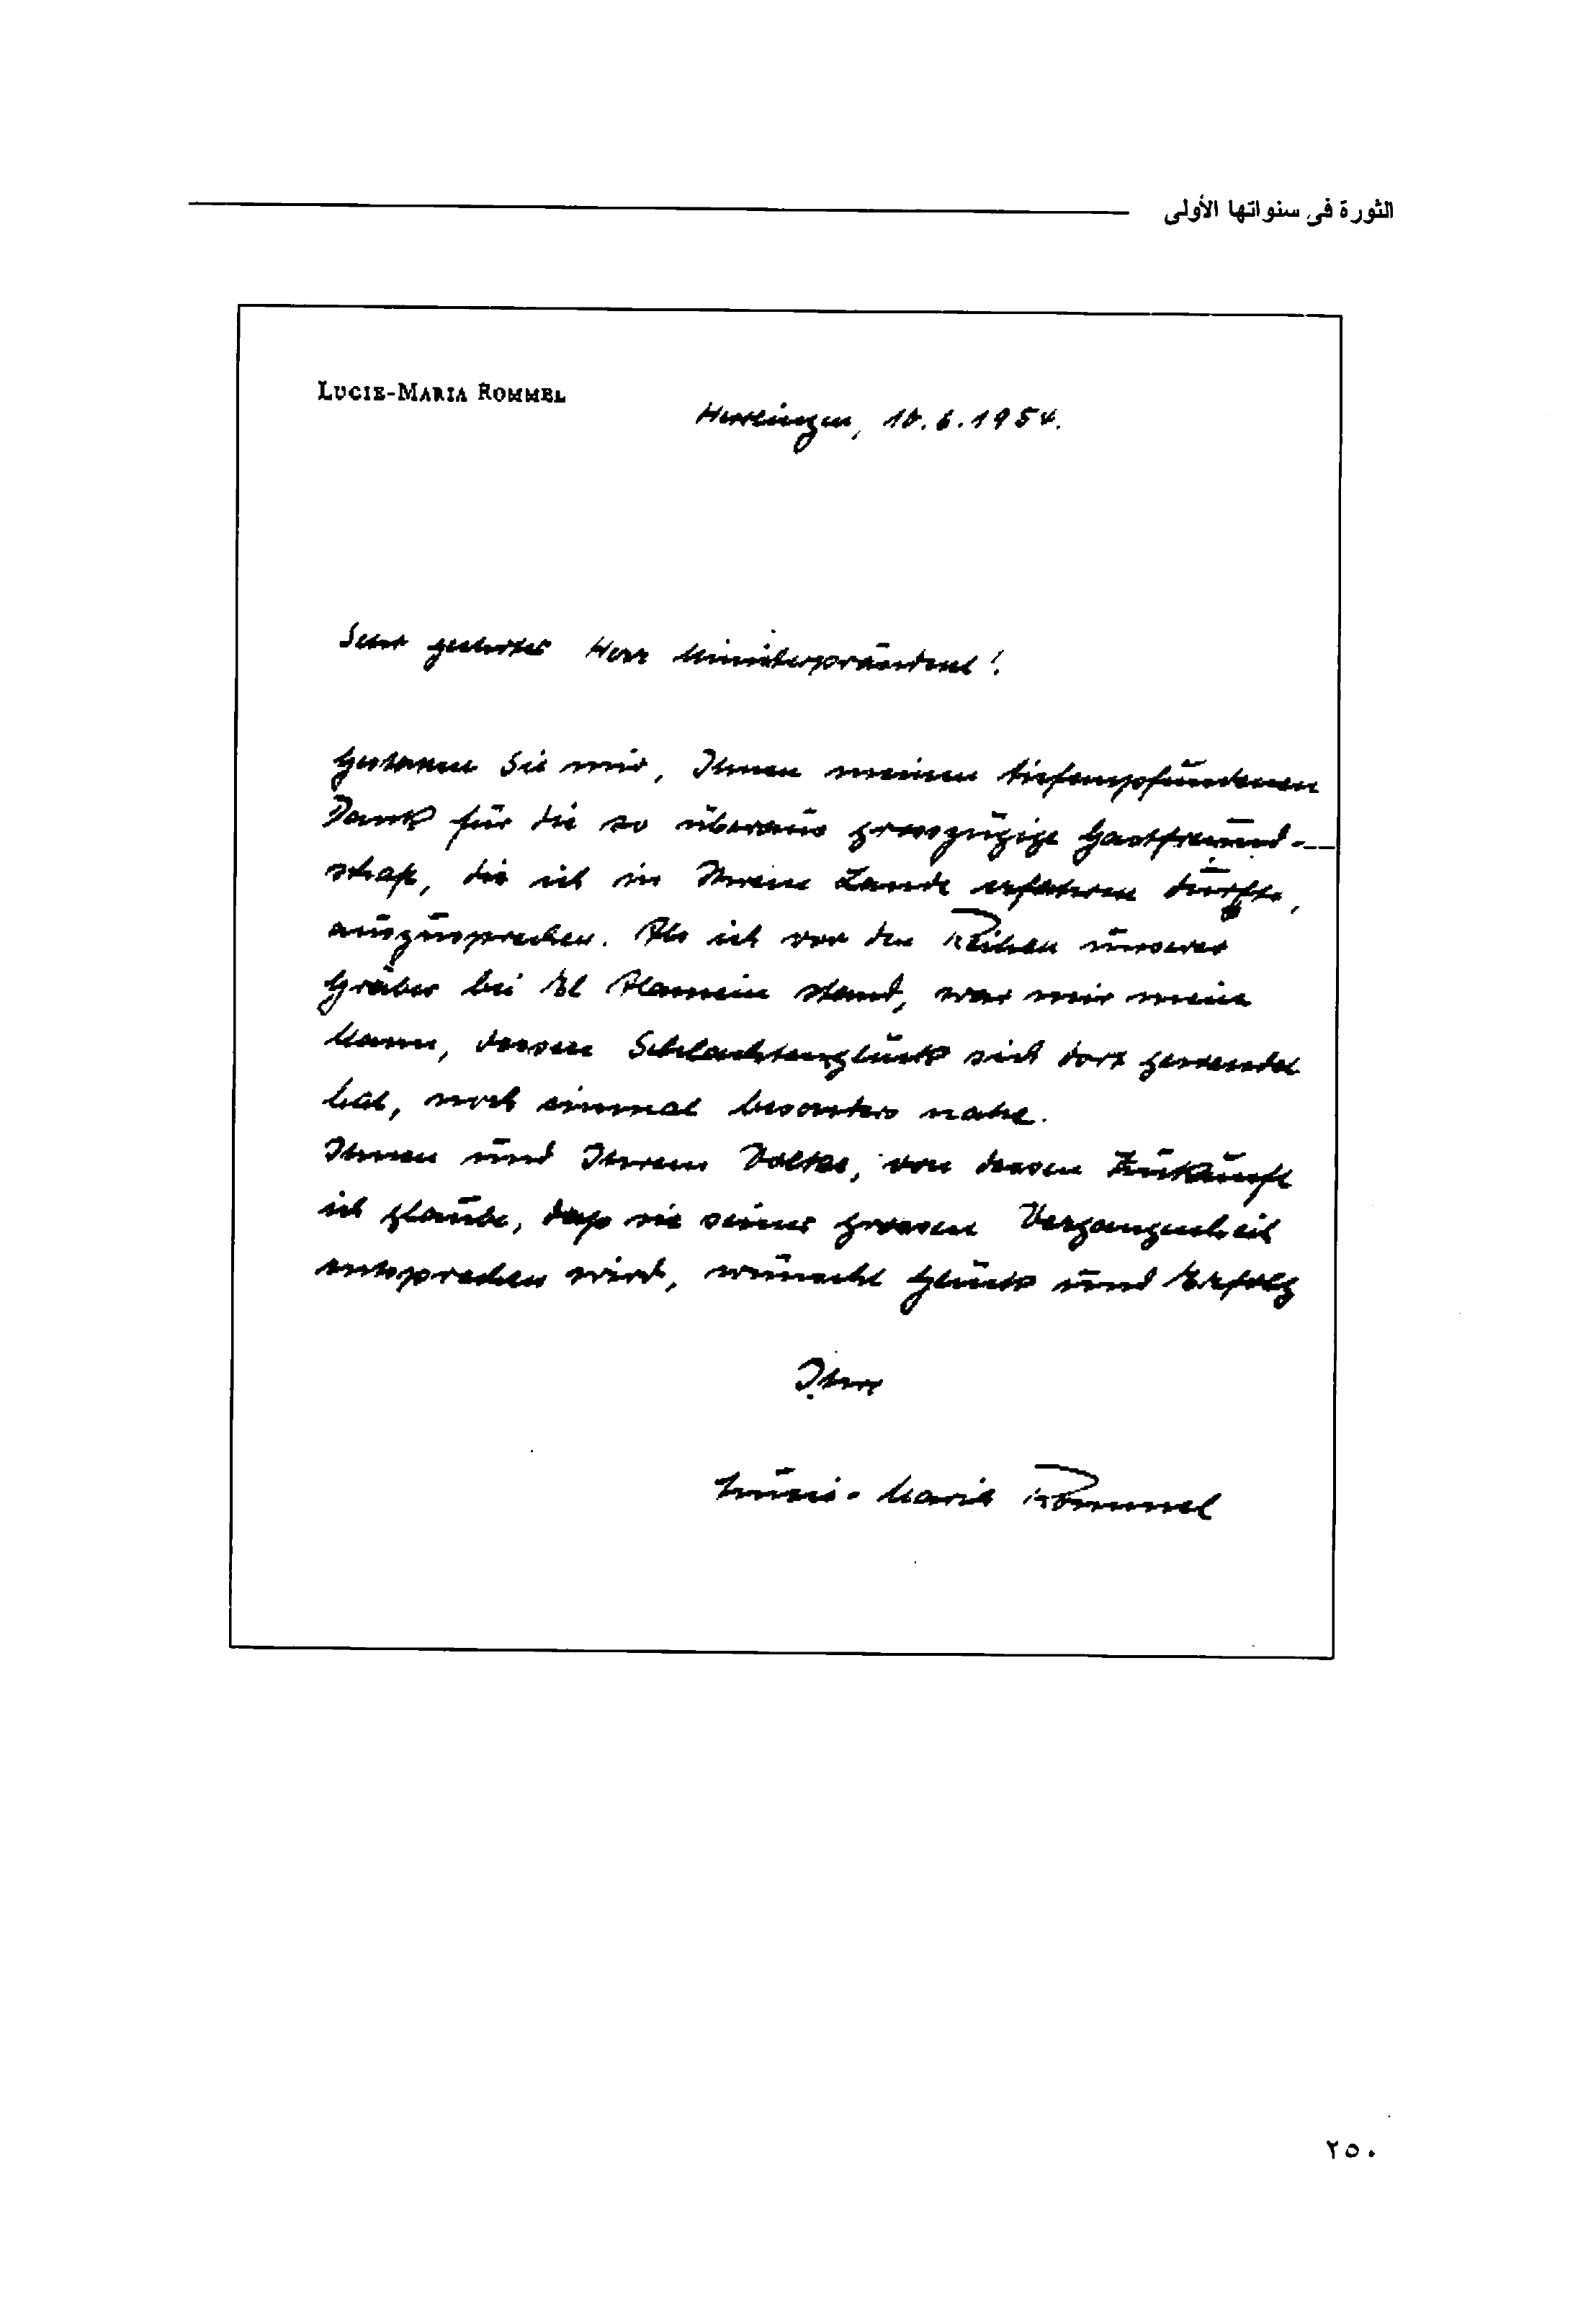 الثورة فى سنواتها الأولى
LUCIE-MARIA ROMMEL
Herrlingen, 10.6.1954.
Sehr geehrter Herr Ministerpräsident!
Gestatten Sie mir, Ihnen meinen tiefempfundenen
Dank für die so überaus grosszügige Gastfreund-
schaft, die ich in Ihrem Lande erfahren durfte,
auszusprechen. Als ich vor den Reihen unserer
Gräber bei El Alamein stand, war mir mein
Mann, dessen Schlachtenglück sich dort gewendet
hat, noch einmal besonders nahe.
Ihnen und Ihrem Volke, von dessen Zukunft
ich glaube, daß sie seiner grossen Vergangenheit
entsprechen wird, wünscht Glück und Erfolg
Ihre
Lucie-Maria Rommel
٢٥٠